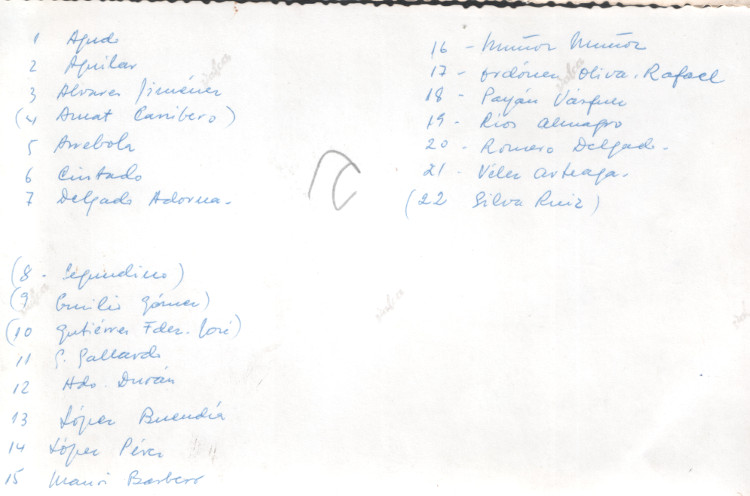 1 Agudo
2 Aguilar
3 Alvarez Jiménez
(4 Amat Carribero)
5 Arrebola
6 Cintado
7 Delgado Adorna.
(8 - Segundino)
(9 Emilio Gómez)
(10 Gutiérrez Fdez. José)
11 G. Gallardo
12 Hdo. Durán
13 López Buendía
14 López Pérez
15 Barbero
16 - Muñoz Muñoz
17 - Ordóñez Oliva, Rafael
18 - Payán Vázquez
19 - Ríos Almagro
20 - Romero Delgado.
21 - Vélez Arteaga.
(22 Silva Ruiz)